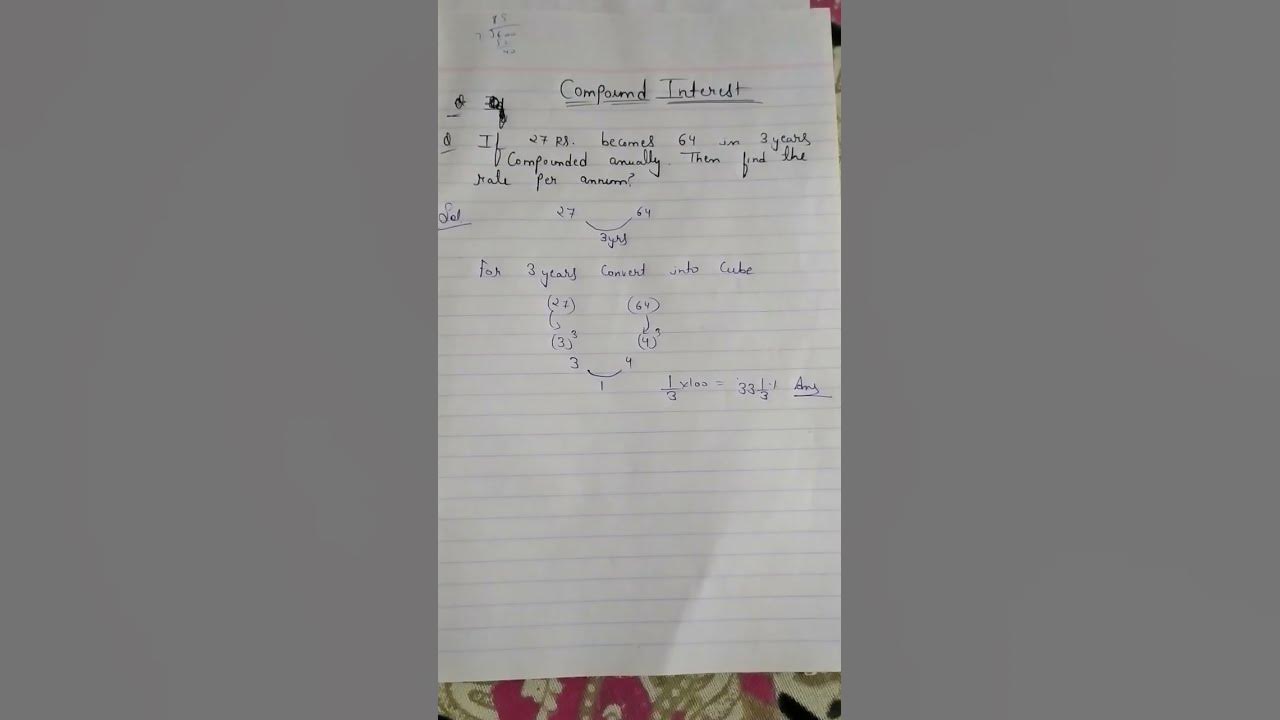 Compound Interest
Q If 27 RS. becomes 64 in 3 years
Compounded anually. Then find the
rate per annum?
Sol.
27 64
3yrs
For 3 years Convert into Cube
(27) (64)
(3)³ (4)³
3 4
1
1/3 x100 = 33 1/3 % Ans